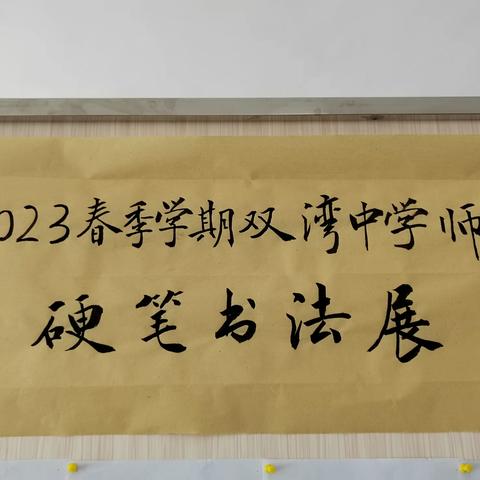 023春季学期双湾中学师
硬笔书法展